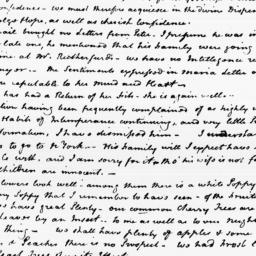 confidence - We must therefore acquiesce in the Divine Dispen
ulge Hope, as well as cherish Confidence.
ail brought no Letters from Peter. I presume he was in
late one, he mentioned that his family were going
me at Mr. Rutherfurd's - we have no Intelligence re
nyor - The Sentiments expressed in Maria Letter a
re reputable to her Mind and Heart -
has had a Return of her Fits. She is again well -
when having been frequently complained of as highly
Habit of Intemperance continuing, and very little P
formation, I have dismissed him - I understan
s to go to N York - His family will I expect have
to with, and I am sorry for it, tho' his wife is not f
children are innocent -
lowers look well - among them there is a white Poppy
ny Poppy that I remember to have seen - of the fruits
we have great Plenty - our common Cherry Trees are
leaves by an Insect - To me as well as to our neigh
thing - We shall have plenty of apples & some
& Peaches there is no Prospect - We had Frost